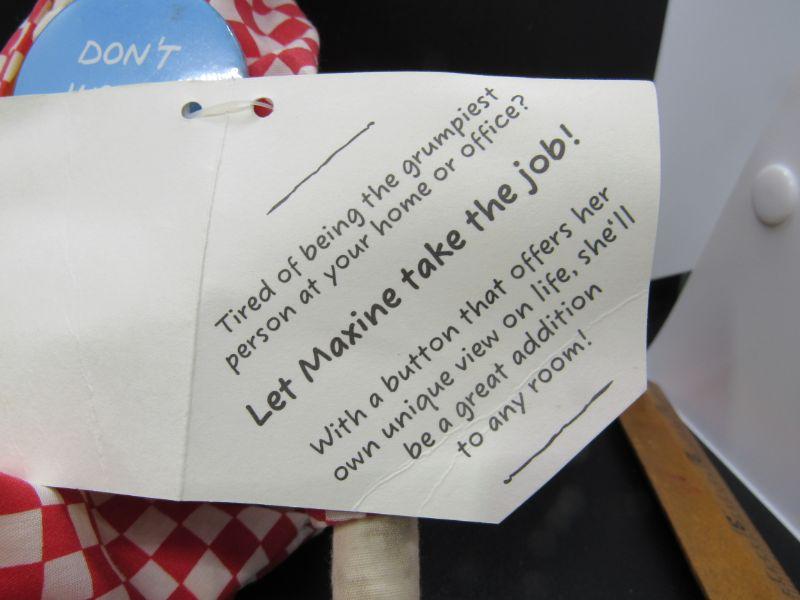 DON'T
Tired of being the grumpiest
person at your home or office?
Let Maxine take the job!
With a button that offers her
own unique view on life, she'll
be a great addition
to any room!